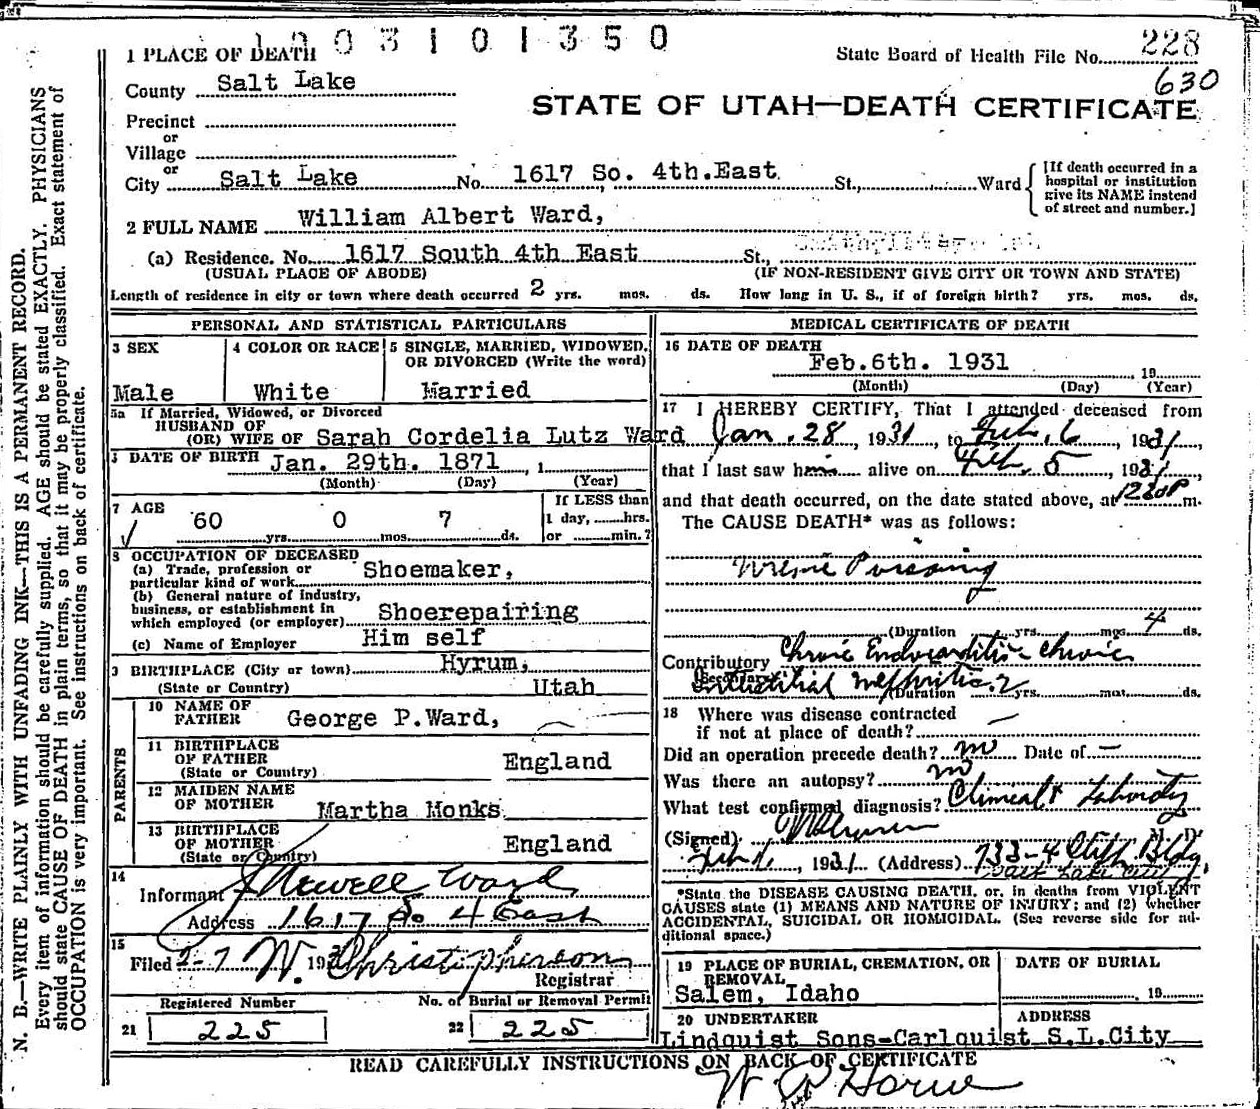 1003101350
1 PLACE OF DEATH
State Board of Health File No. 228
630
County Salt Lake
STATE OF UTAH—DEATH CERTIFICATE
Precinct
or
Village
or
City Salt Lake No. 1617 So. 4th.East St., Ward
[If death occurred in a
hospital or institution
give its NAME instead
of street and number.]
2 FULL NAME William Albert Ward,
(a) Residence. No. 1617 South 4th East St.,
(USUAL PLACE OF ABODE) (IF NON-RESIDENT GIVE CITY OR TOWN AND STATE)
Length of residence in city or town where death occurred 2 yrs. mos. ds. How long in U. S., if of foreign birth? yrs. mos. ds.
PERSONAL AND STATISTICAL PARTICULARS
3 SEX 4 COLOR OR RACE 5 SINGLE, MARRIED, WIDOWED,
OR DIVORCED (Write the word)
Male White Married
5a If Married, Widowed, or Divorced
HUSBAND OF
(OR) WIFE OF Sarah Cordelia Lutz Ward
DATE OF BIRTH Jan. 29th. 1871, 1
(Month) (Day) (Year)
7 AGE If LESS than
60 yrs. 0 mos. 7 ds. 1 day, hrs.
or min.?
8 OCCUPATION OF DECEASED
(a) Trade, profession or
particular kind of work Shoemaker,
(b) General nature of industry,
business, or establishment in
which employed (or employer) Shoerepairing
(c) Name of Employer Him self
9 BIRTHPLACE (City or town) Hyrum,
(State or Country) Utah
PARENTS
10 NAME OF
FATHER George P.Ward,
11 BIRTHPLACE
OF FATHER
(State or Country) England
12 MAIDEN NAME
OF MOTHER Martha Monks
13 BIRTHPLACE
OF MOTHER
(State or Country) England
14
Informant J Newell Ward
Address 1617 So 4 East
15
Filed 2-7 193 W. Christopherson
Registrar
Registered Number No. of Burial or Removal Permit
21 225 22 225
MEDICAL CERTIFICATE OF DEATH
16 DATE OF DEATH
Feb.6th. 1931 19
(Month) (Day) (Year)
17 I HEREBY CERTIFY, That I attended deceased from
Jan. 28, 1931, to Feb. 6, 1931,
that I last saw him alive on Feb. 5, 1931,
and that death occurred, on the date stated above, at 1220P m.
The CAUSE DEATH* was as follows:
Uremic Poisoning
(Duration yrs. mos. 4 ds.
Contributory Chronic Endocarditis - chronic
(Secondary) Interstitial Nephritis. (Duration 2 yrs. mos. ds.
18 Where was disease contracted
if not at place of death? —
Did an operation precede death? no Date of —
Was there an autopsy? no
What test confirmed diagnosis? Clinical & Laboratory
(Signed) M. D.
Feb , 1931 (Address) 733-4 Clift Bldg.
Salt Lake City
*State the DISEASE CAUSING DEATH, or, in deaths from VIOLENT
CAUSES state (1) MEANS AND NATURE OF INJURY; and (2) whether
ACCIDENTAL, SUICIDAL OR HOMICIDAL. (See reverse side for ad-
ditional space.)
19 PLACE OF BURIAL, CREMATION, OR
REMOVAL DATE OF BURIAL
Salem, Idaho 19
20 UNDERTAKER ADDRESS
Lindquist Sons-Carlquist S.L.City
READ CAREFULLY INSTRUCTIONS ON BACK OF CERTIFICATE
N. B.—WRITE PLAINLY WITH UNFADING INK—THIS IS A PERMANENT RECORD.
Every item of information should be carefully supplied. AGE should be stated EXACTLY. PHYSICIANS
should state CAUSE OF DEATH in plain terms, so that it may be properly classified. Exact statement of
OCCUPATION is very important. See instructions on back of certificate.